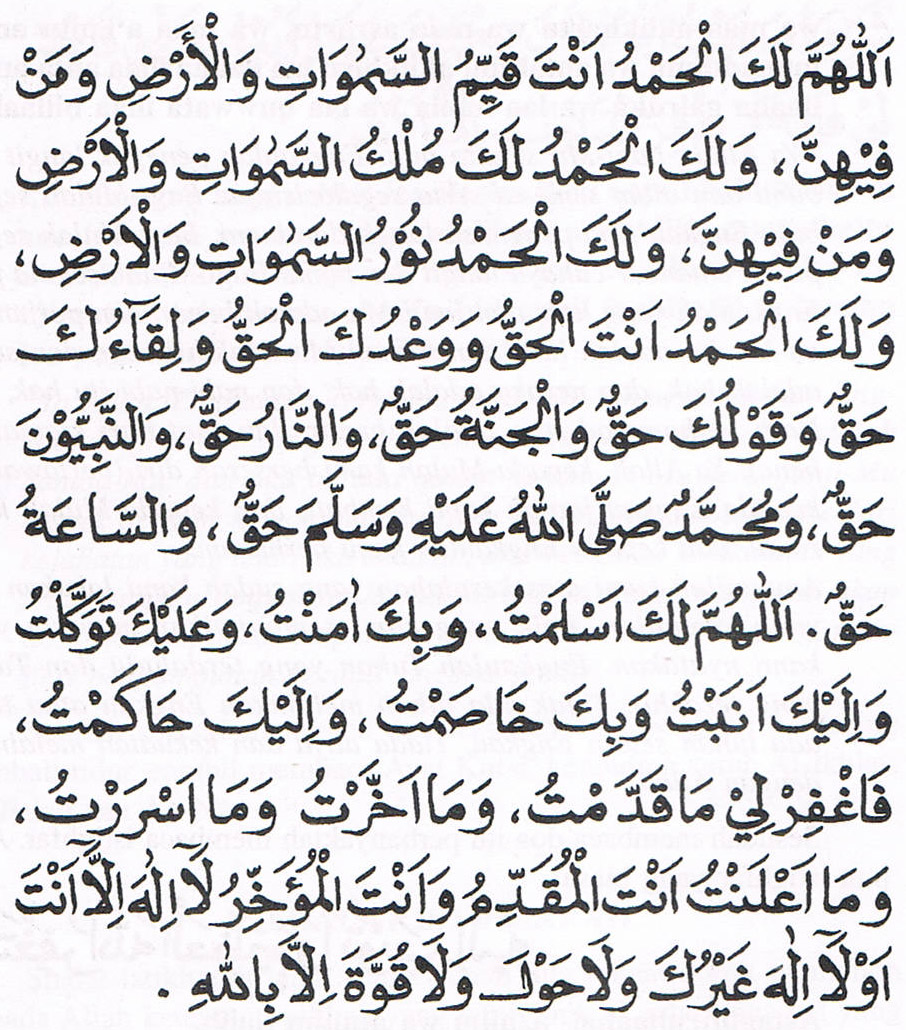 اَللّٰهُمَّ لَكَ الْحَمْدُ اَنْتَ قَيِّمُ السَّمٰوَاتِ وَالْاَرْضِ وَمَنْ
فِيْهِنَّ، وَلَكَ الْحَمْدُ لَكَ مُلْكُ السَّمٰوَاتِ وَالْاَرْضِ
وَمَنْ فِيْهِنَّ، وَلَكَ الْحَمْدُ نُوْرُ السَّمٰوَاتِ وَالْاَرْضِ،
وَلَكَ الْحَمْدُ اَنْتَ الْحَقُّ وَوَعْدُكَ الْحَقُّ وَلِقَآءُكَ
حَقٌّ وَقَوْلُكَ حَقٌّ وَالْجَنَّةُ حَقٌّ، وَالنَّارُ حَقٌّ، وَالنَّبِيُّوْنَ
حَقٌّ، وَمُحَمَّدٌ صَلَّى اللهُ عَلَيْهِ وَسَلَّمَ حَقٌّ، وَالسَّاعَةُ
حَقٌّ. اَللّٰهُمَّ لَكَ اَسْلَمْتُ، وَبِكَ اٰمَنْتُ، وَعَلَيْكَ تَوَكَّلْتُ
وَاِلَيْكَ اَنَبْتُ وَبِكَ خَاصَمْتُ، وَاِلَيْكَ حَاكَمْتُ،
فَاغْفِرْلِيْ مَاقَدَّمْتُ، وَمَا اَخَّرْتُ وَمَا اَسْرَرْتُ،
وَمَا اَعْلَنْتُ اَنْتَ الْمُقَدِّمُ وَاَنْتَ الْمُؤَخِّرُ لَااِلٰهَ اِلَّا اَنْتَ
اَوْلَآ اِلٰهَ غَيْرُكَ وَلَاحَوْلَ وَلَاقُوَّةَ اِلَّا بِاللهِ.